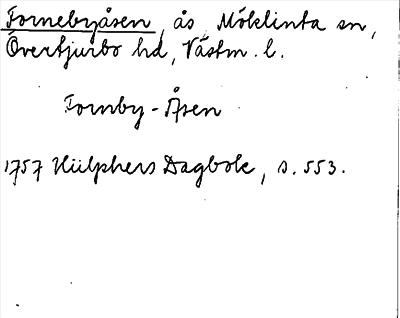 Fornebyåsen, ås Möklinta sn,
Övertjurbo hd, Västm. l.
Fornby-Åsen
1757 Hülphers Dagbok, s. 553.